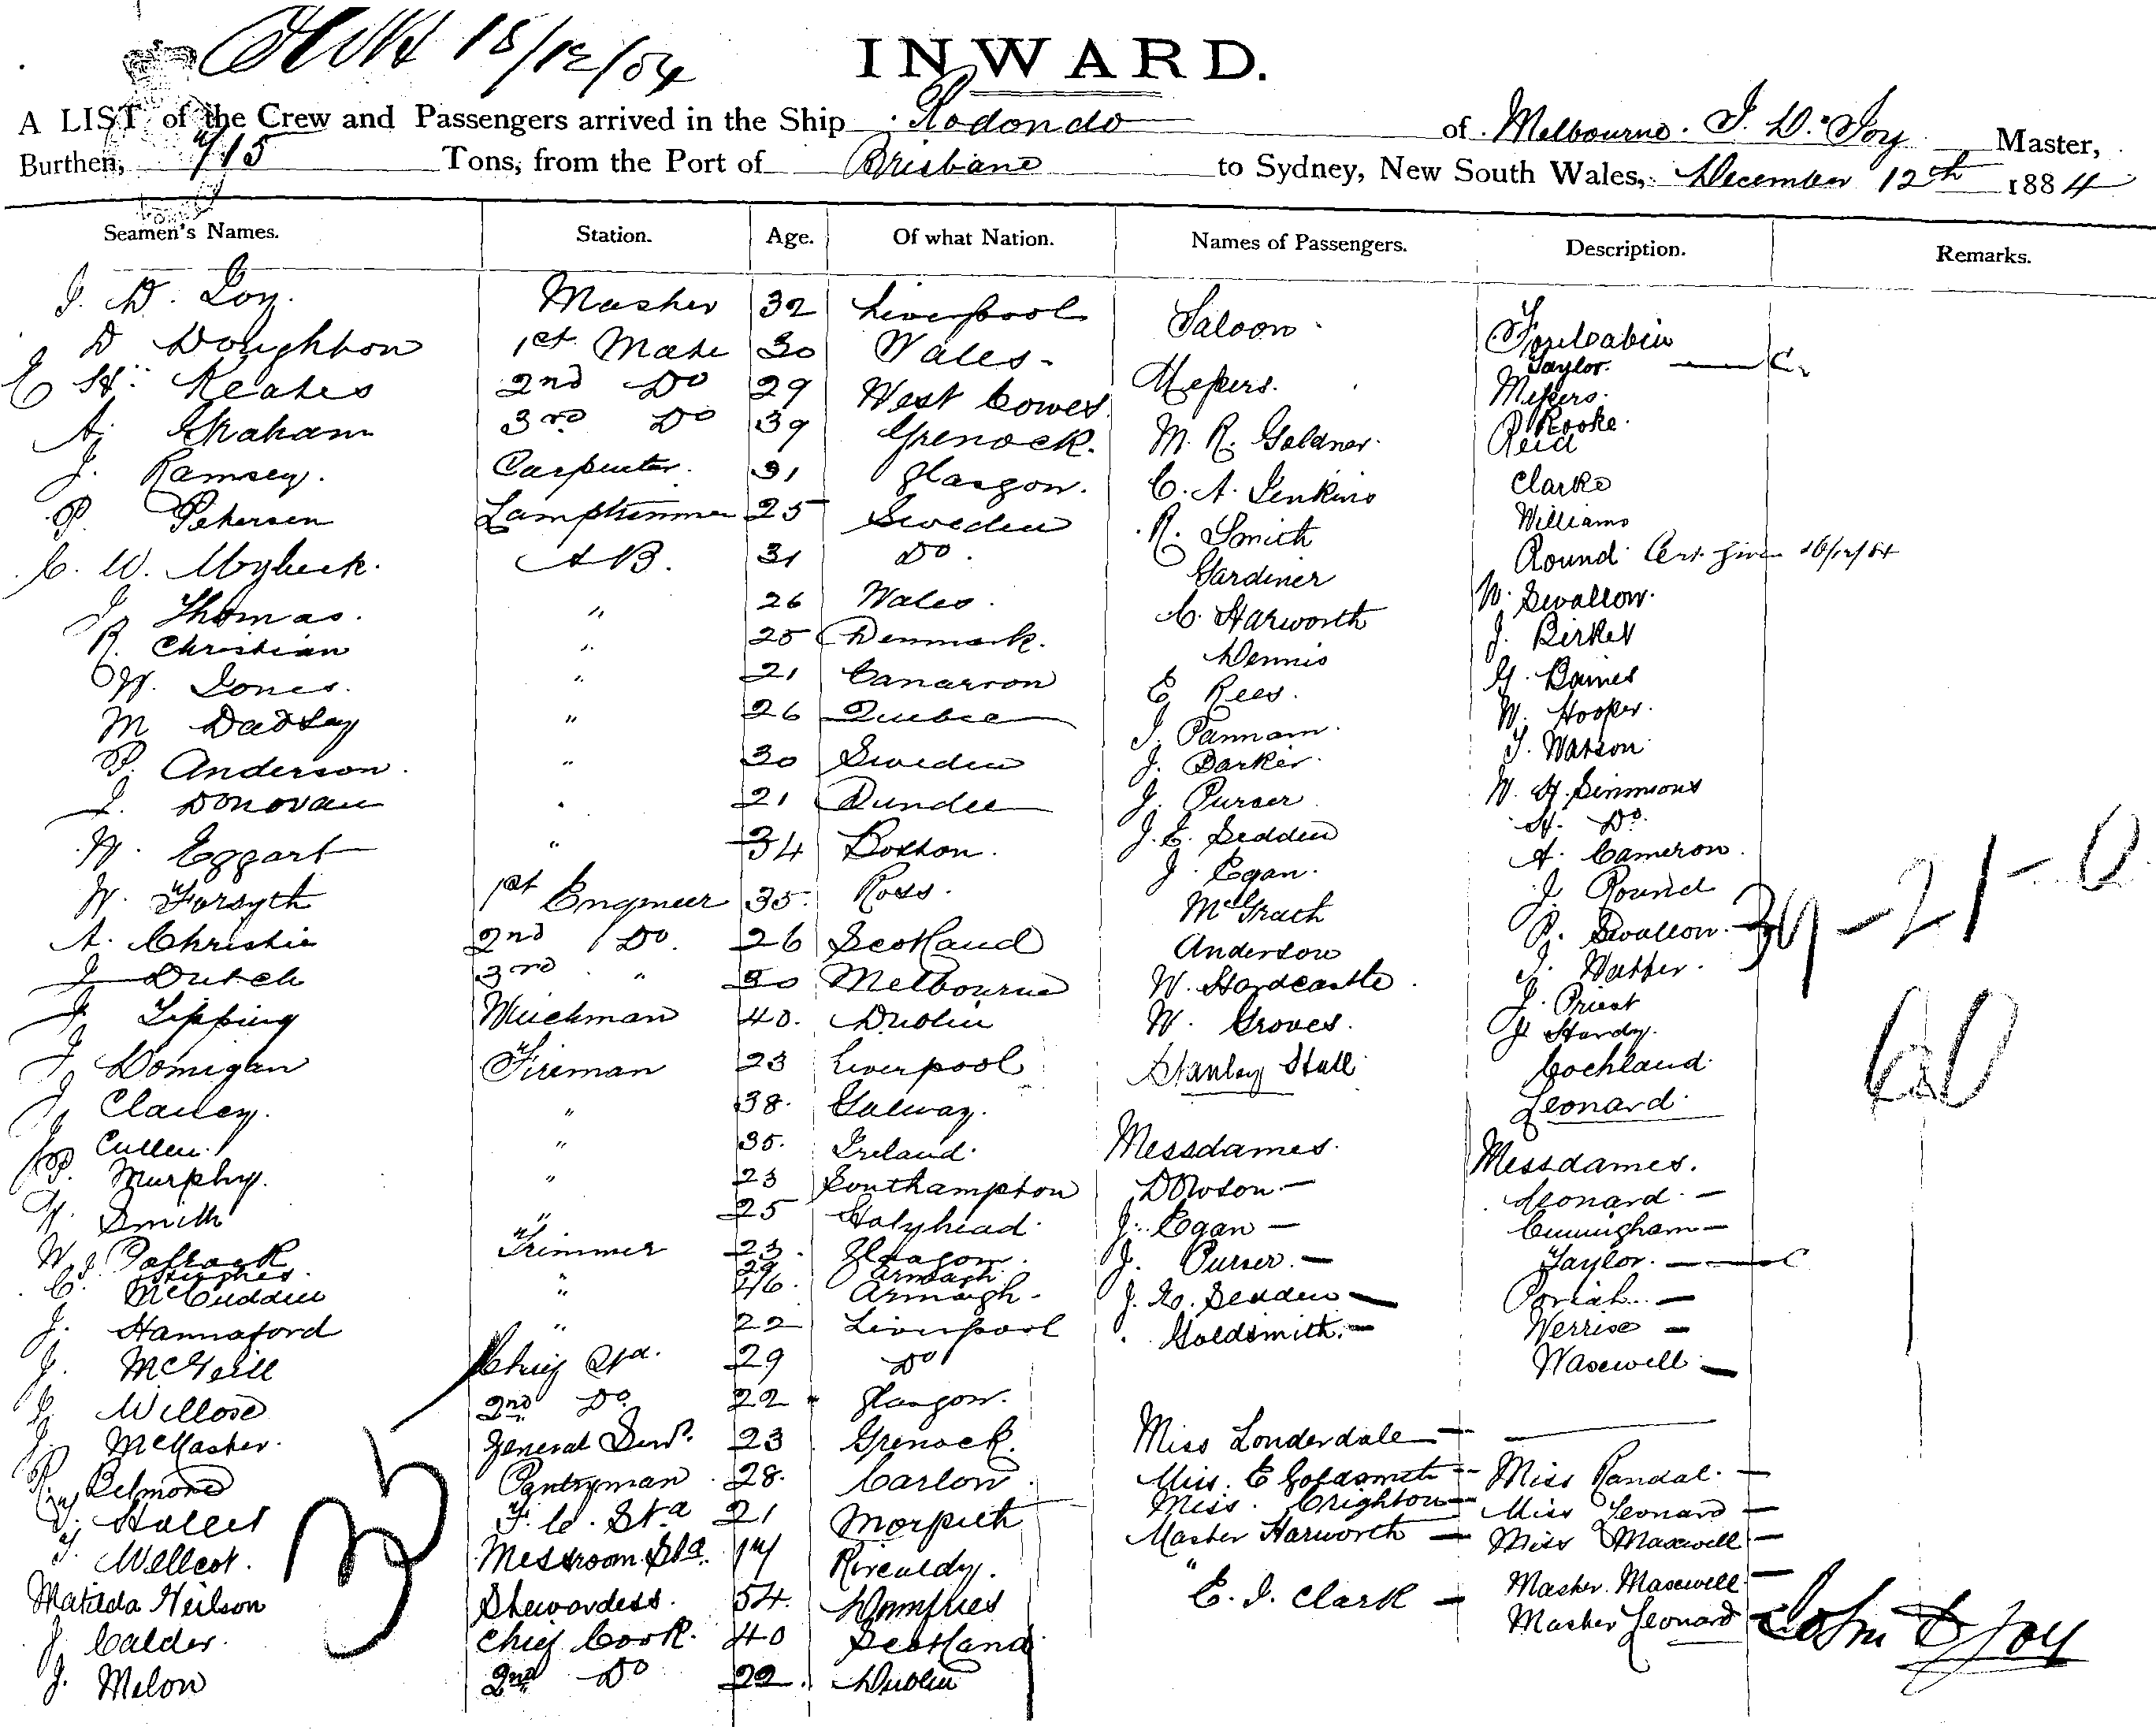 15/12/84
INWARD.
A LIST of the Crew and Passengers arrived in the Ship Rodondo of Melbourne. J. D. Joy Master,
Burthen, 715 Tons, from the Port of Brisbane to Sydney, New South Wales, December 12th 1884
Seamen's Names. Station. Age. Of what Nation. Names of Passengers. Description. Remarks.
J. D. Joy. Master 32 Liverpool Saloon Forecabin
D Doughton 1st Mate 30 Wales Taylor. C.
E H. Keates 2nd Do 29 West Cowes Messrs. Messrs.
A. Graham 3rd Do 39 Grenock. M. R. Goldner. Rooke. Reid
J. Ramsey. Carpenter. 31 Glasgow. C. A. Jenkins Clarke
P. Petersen Lamptrimmer 25 Sweden R. Smith Williams
C. W. 	A B. 31 Do. Gardiner Round Cert. given 16/12/84
J Thomas. " 26 Wales. C. Harworth W. Swallow.
R. Christian " 25 Denmark. Dennis J. Birket
W. Jones. " 21 Canarvon E Rees. G. Baines
M Dadsay " 26 Quebec J. Pannam. W. Hooper.
P. Anderson. " 30 Sweden J. Barker. J. Watson
J. Donovan " 21 Dundee J. Purser W. H. Simmons
W. Eggart " 34 Boston. J. E. Seddon H. Do.
W. Forsyth 1st Engineer 35. Ross. J. Egan. A. Cameron.
A. Christie 2nd Do. 26 Scotland McGrath J. Round
J Dutch 3rd " 30 Melbourne Anderson P. Swallow. 39-21-0
J Tipping Winchman 40. Dublin W. Hardcastle. J.
J Domigan Fireman 23 Liverpool W. Groves. J. Priest
J Clancy. " 38. Galway. Stanley Hall J Hardy. 60
J Cullen. " 35. Ireland. Messdames. Cochland.
P. Murphy. " 23 Southampton Dowson. — Leonard.
W. Smith " 25 Holyhead. J. Egan — Messdames.
W. Trimmer 23. Glasgow. J. Purser. — Leonard. —
J. Hughes. 29 Armagh. Cunningham —
C. McCudden " 46. Armagh. J. E. Seddon — Taylor. — C
J. Hannaford " 22 Liverpool Goldsmith. —
J. McNeill Chief Std. 29 Do Maxwell —
Willose 2nd Do. 22 Glasgow.
J. McMaster. General Serv. 23 Grenock. Miss Londerdale —
P Belmond Pantryman 28. Carlow. Miss. E Goldsmith — Miss Randal. —
Hallet F. C. Std 21 Morpeth Miss. Crighton — Miss Leonard —
Wellcot. Messroom Std. 17 Kircaldy. Master Harworth — Miss Maxwell —
Matilda Neilson Stewardess. 54. Dumfries " E. J. Clark — Master. Maxwell —
J. Calder. Chief Cook. 40 Scotland Master Leonard John D Joy
J. Melon 2nd Do 22. Dublin
35